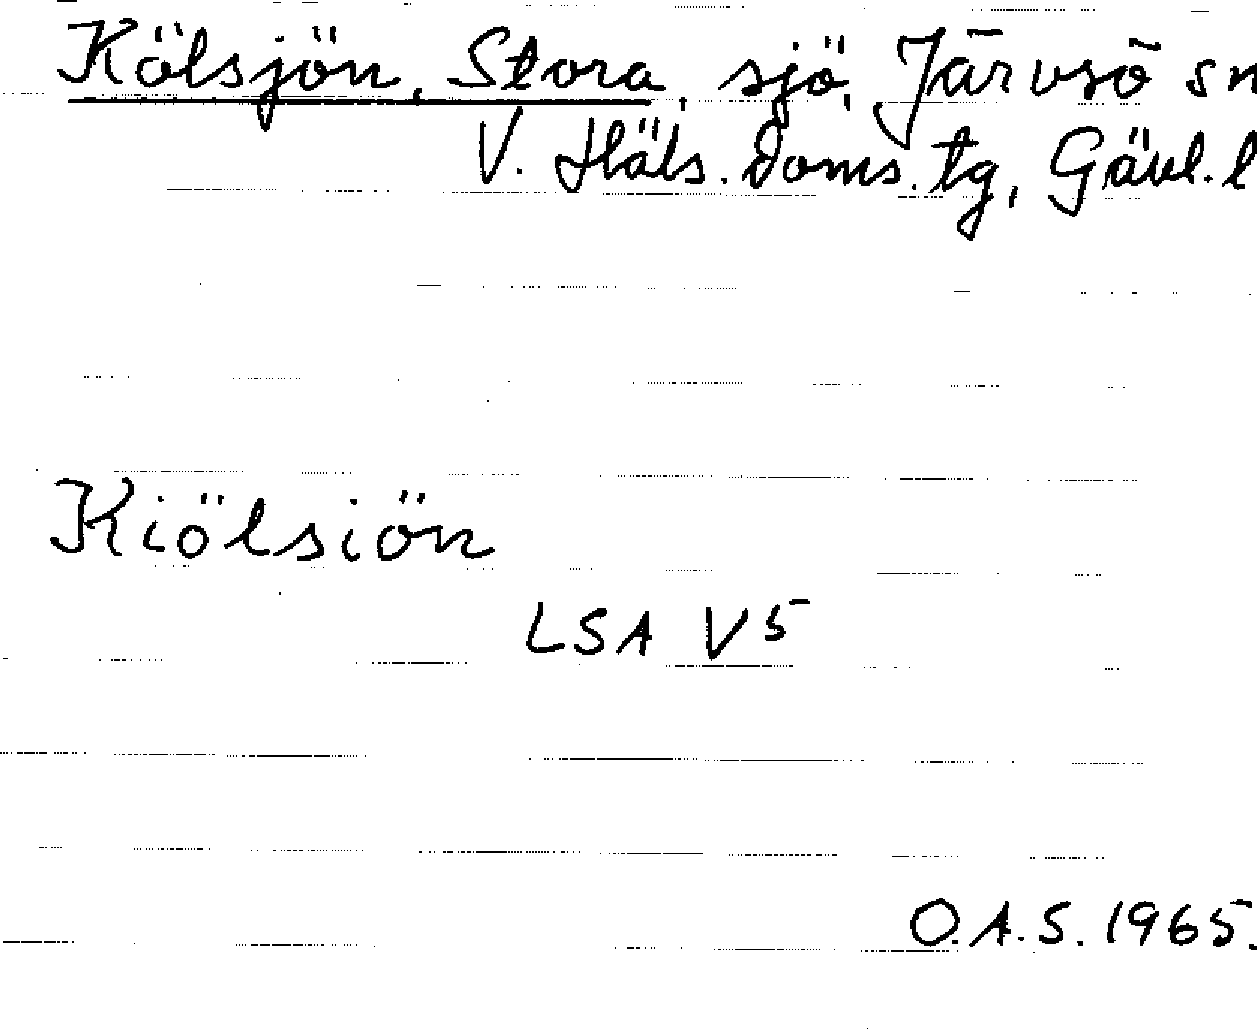 Kölsjön, Stora, sjö, Järvsö sn
V. Häls. doms. tg, Gävl. l
Kiölsiön
LSA V5
O.A.S. 1965.